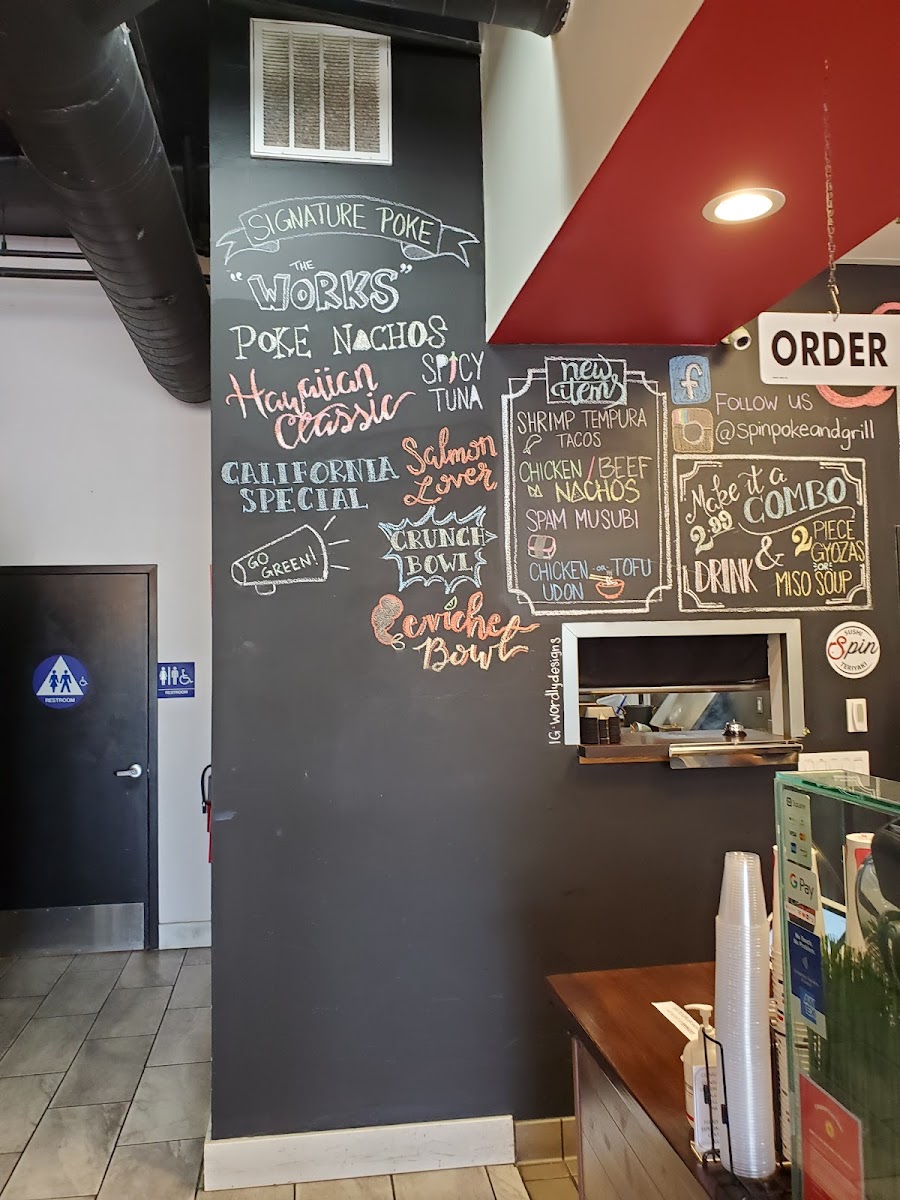 SIGNATURE POKE
"THE
WORKS"
POKE NACHOS
Hawaiian
Classic
SPICY
TUNA
CALIFORNIA
SPECIAL
Salmon
Lover
GO GREEN!
CRUNCH
BOWL
Ceviche
Bowl
new
items
SHRIMP TEMPURA
TACOS
CHICKEN/BEEF
NACHOS
SPAM MUSUBI
CHICKEN OR TOFU
UDON
ORDER
f
FOLLOW US
@spinpokeandgrill
Make it a
2.99 COMBO
DRINK & 2 PIECE
GYOZAS
OR
MISO SOUP
IG: wordlydesigns
SUSHI
Spin
TERIYAKI
RESTROOM
RESTROOM
Square
VISA
G Pay